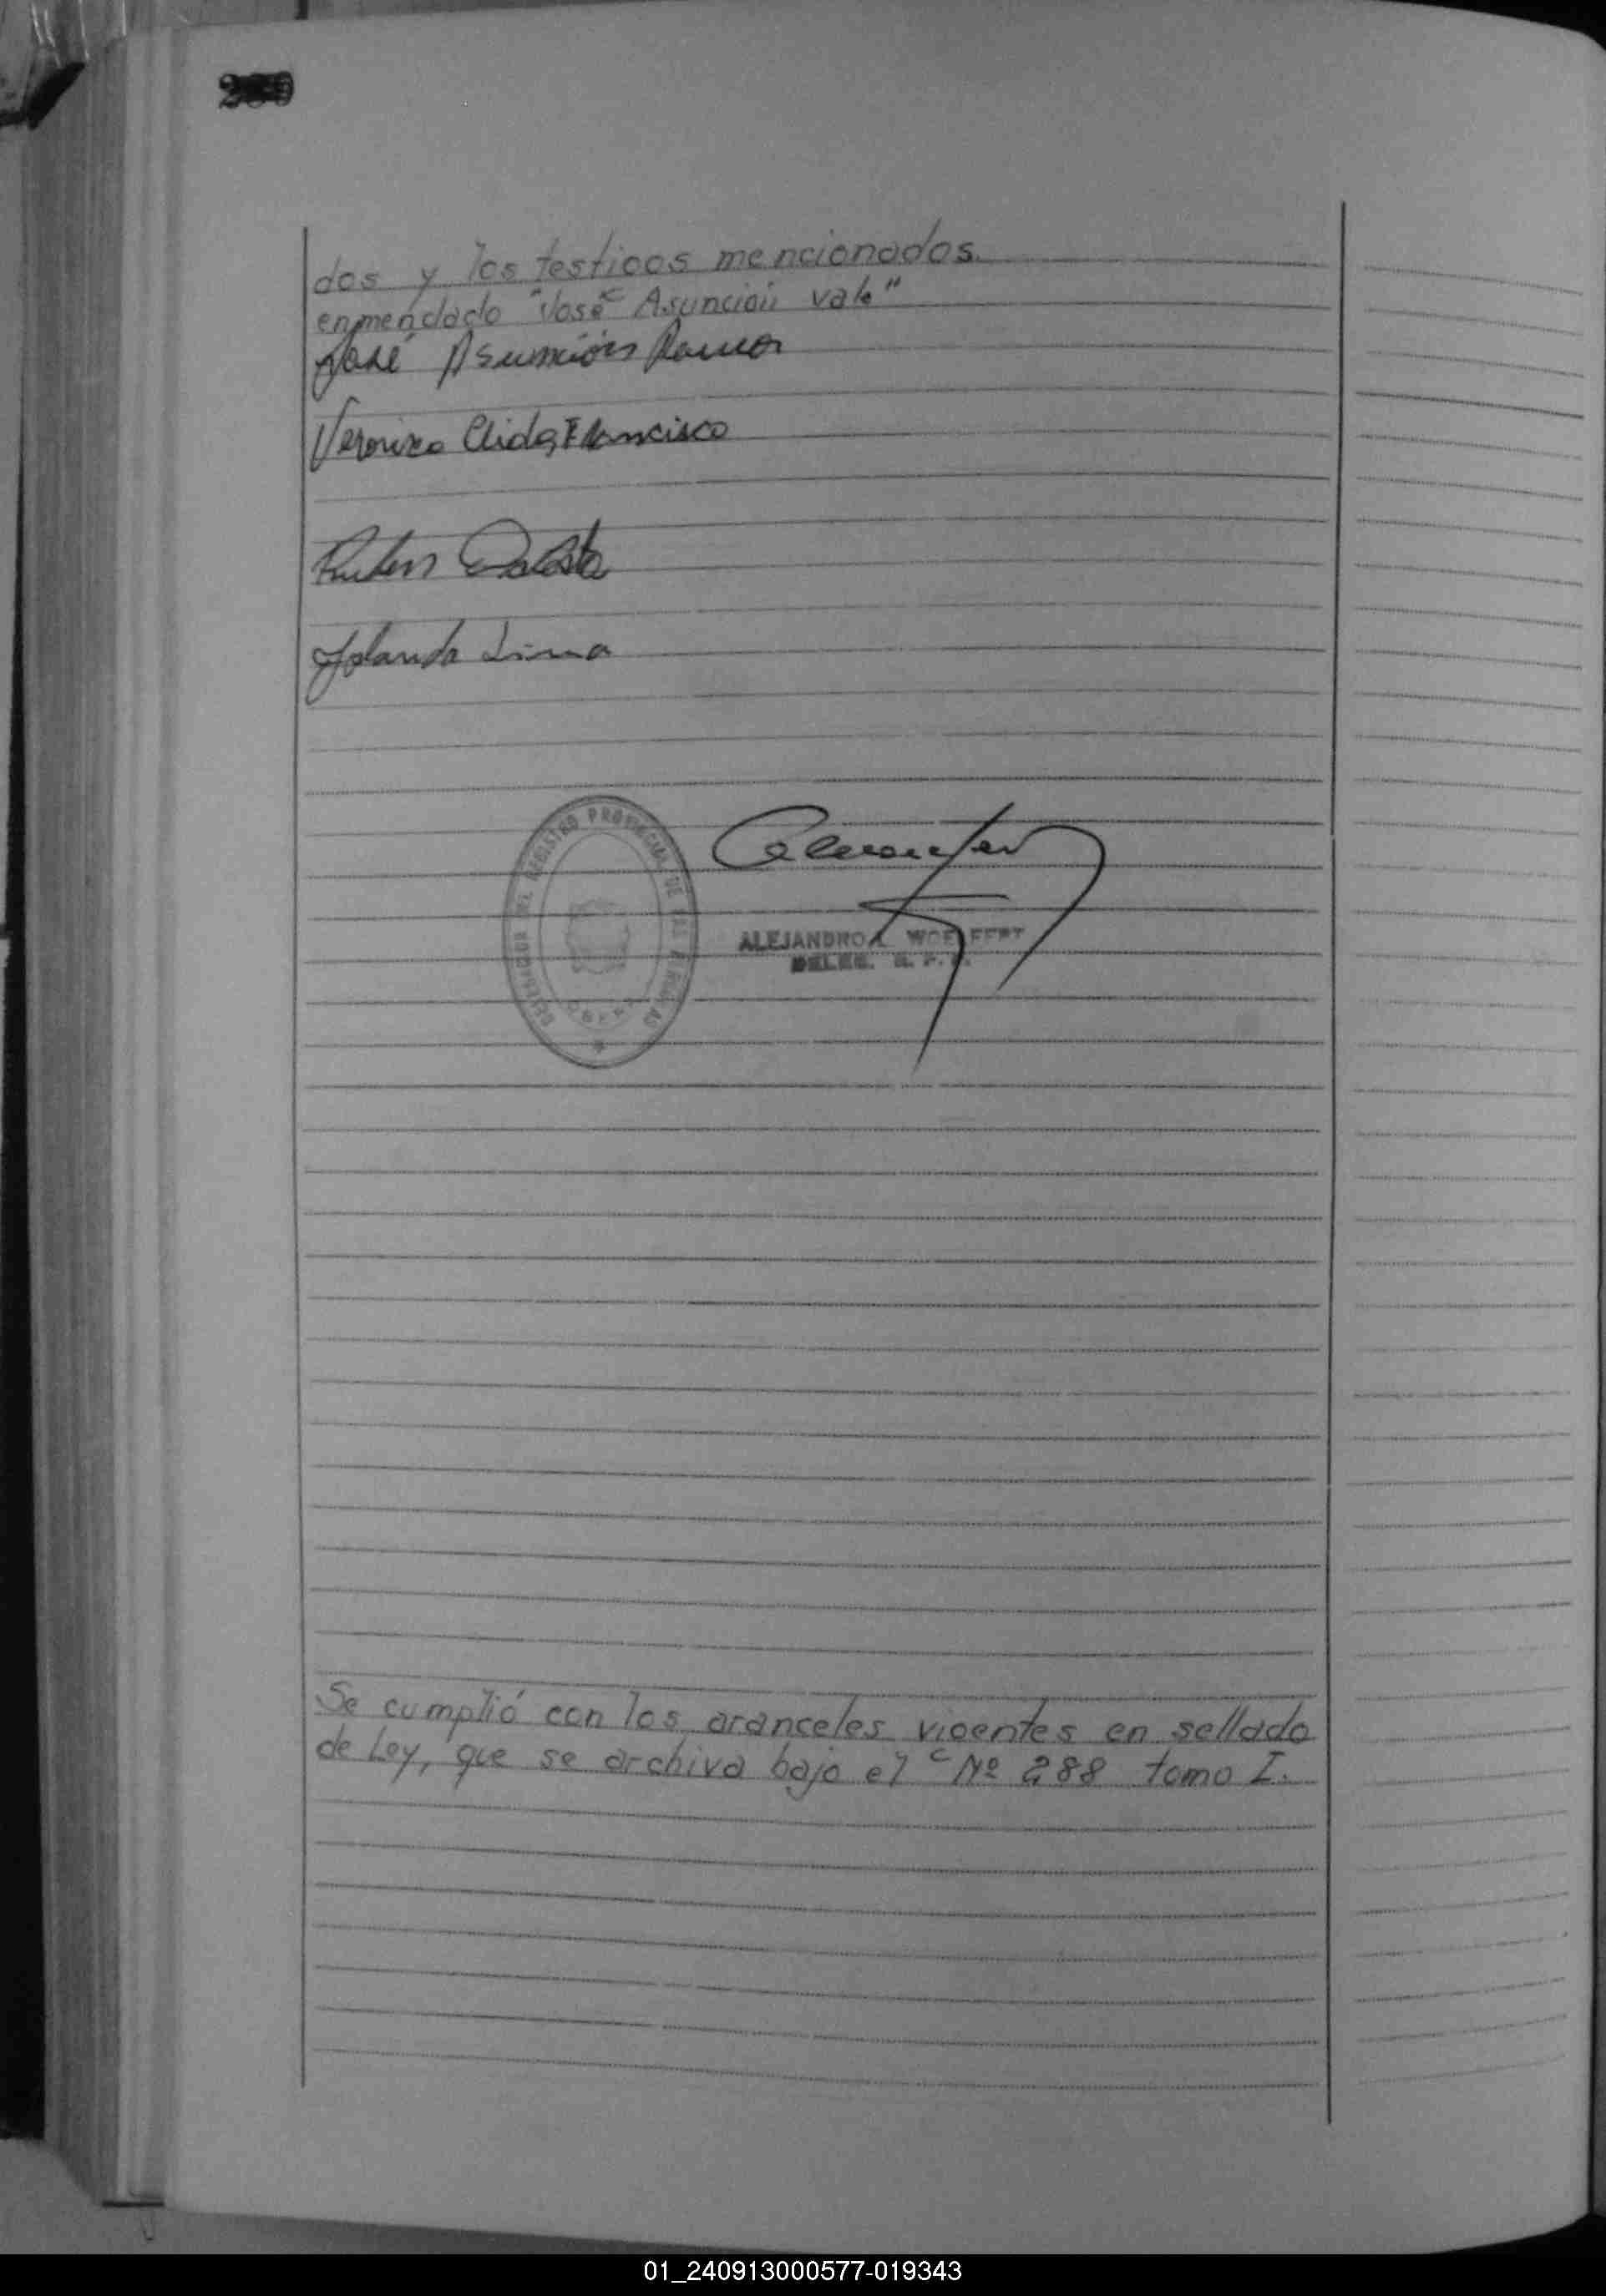 dos y los testigos mencionados.
enmendado "José Asunción vale"
José Asunción Ramos
Veronica Elida Francisco
Ruben
Yolanda Lima
DELEGACION DEL REGISTRO PROVINCIAL DE LAS PERSONAS
OBERA
ALEJANDRO A. WOELFERT
DELEG. R. P. P.
Se cumplió con los aranceles vigentes en sellado
de Ley, que se archiva bajo el Nº 288 tomo I.
01_240913000577-019343